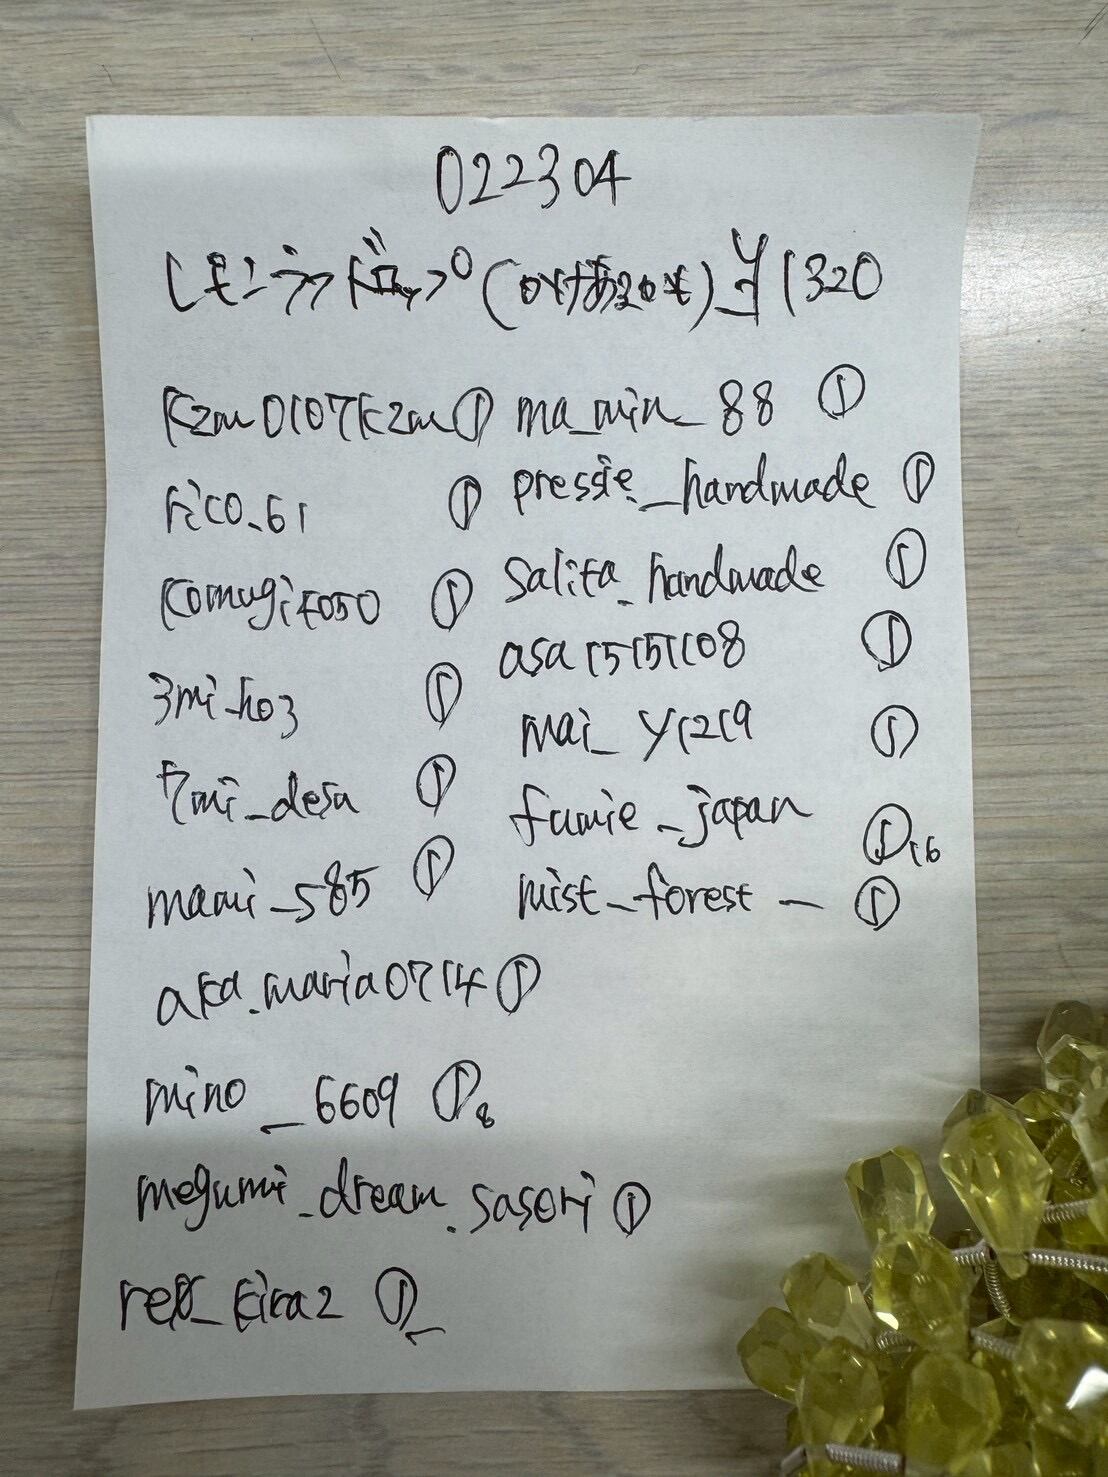 022304
¥1320
kzm0107kzm①
rico_61 ①
komugi4050 ①
3mi_ho3 ①
7mi_desu ①
mami_585 ①
aka.maria0714①
mino_6609 ①8
megumi_dream.sasori①
kira2 ①
ma_min_88 ①
pressie._handmade ①
salita_handmade ①
asa15151108 ①
mai_y1219 ①
fumie_japan ①16
mist_forest_ ①